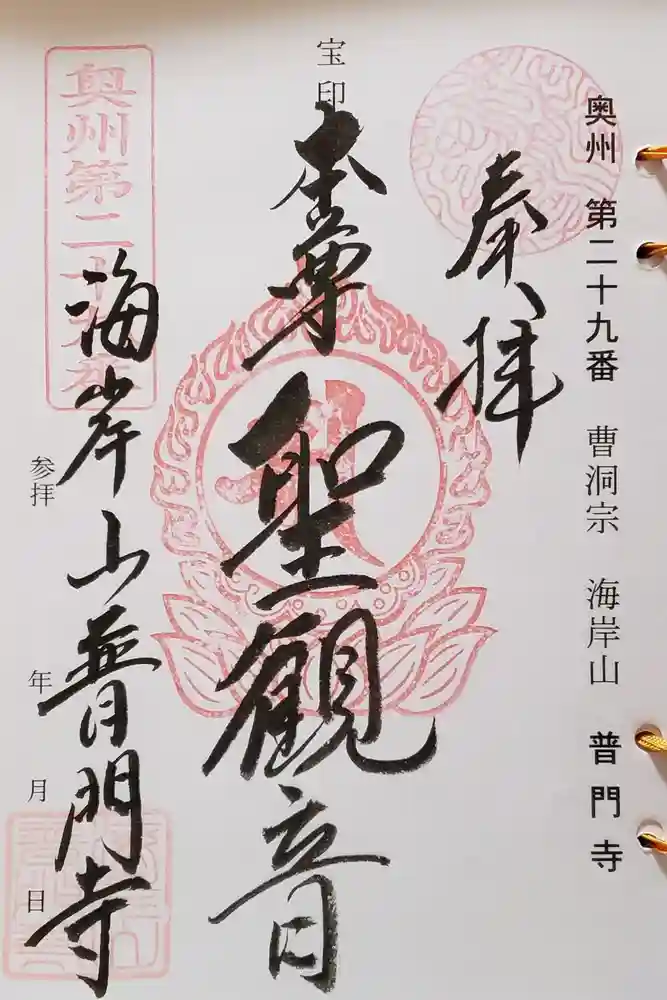 奥州 第二十九番 曹洞宗 海岸山 普門寺
奉拝
宝印
本尊 聖観音
奥州第二十九番
海岸山普門寺
参拝 年 月 日